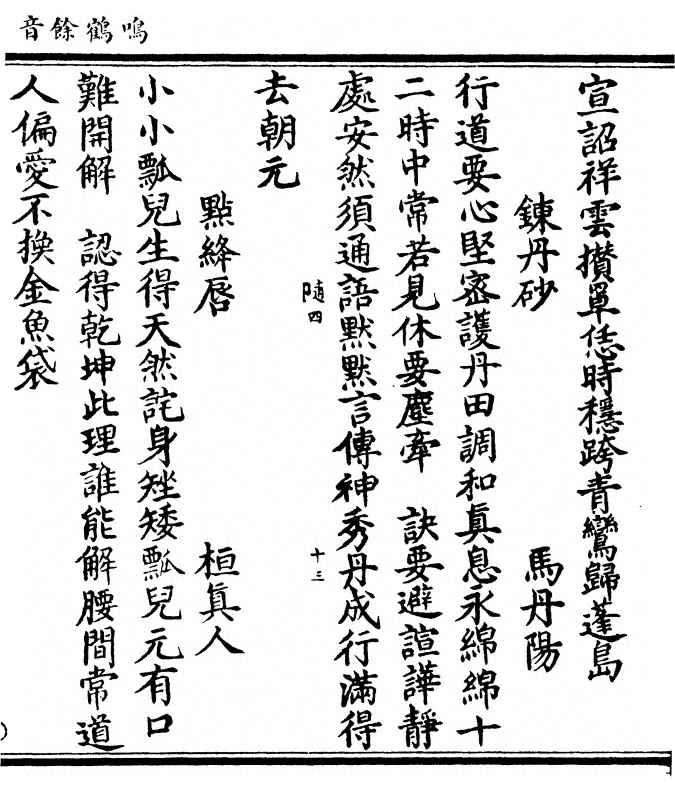 鳴鶴餘音
宣詔祥雲攢罩恁時穩跨青鸞歸蓬島
鍊丹砂 馬丹陽
行道要心堅密護丹田調和眞息永綿綿十
二時中常若見休要塵牽 訣要避諠譁靜
處安然須通語默默言傳神秀丹成行滿得
隨四 十三
去朝元
點絳唇 桓眞人
小小瓢兒生得天然詫身矬矮瓢兒元有口
難開解 認得乾坤此理誰能解腰間常道
人偏愛不換金魚袋